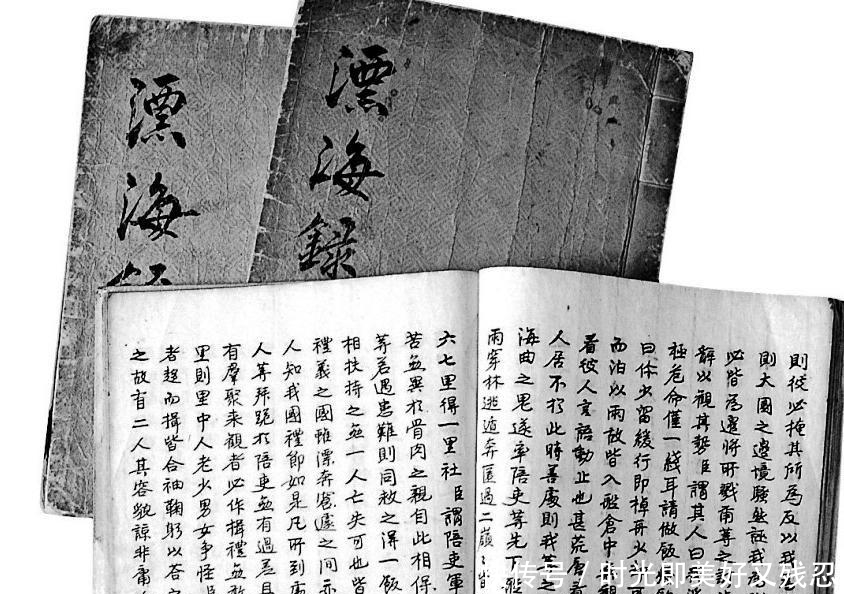 漂海錄
漂海
則從必掩其所為反以我
則大國之邊境騷然誣我為
必皆為邊將所戮
辭以觀其勢臣謂其人曰
極危命僅一綫耳請做飯
曰休少留緩行即掉再
而泊以雨故皆入艙倉中
看彼人言語動止也甚荒唐
人居不於此時善處則我等
海曲之鬼遂率陪吏等先下船
雨穿林逃遁奔匿過二嶺嶺皆
六七里得一里社臣謂陪吏軍
苦無異於骨肉之親自此相保
等若遇患難則同救之得一飯
相扶持之無一人亡失可也皆
禮義之國雖漂奔窘遽之間亦
人知我國禮節如是凡所到處
人等拜跪於陪吏無有過差且
有羣聚來觀者必作揖禮無敢
里則里中人老少男女爭怪
者趨而揖皆合袖鞠躬以答
之故有二人其容貌諒非庸
传号 / 时光即美好又残忍